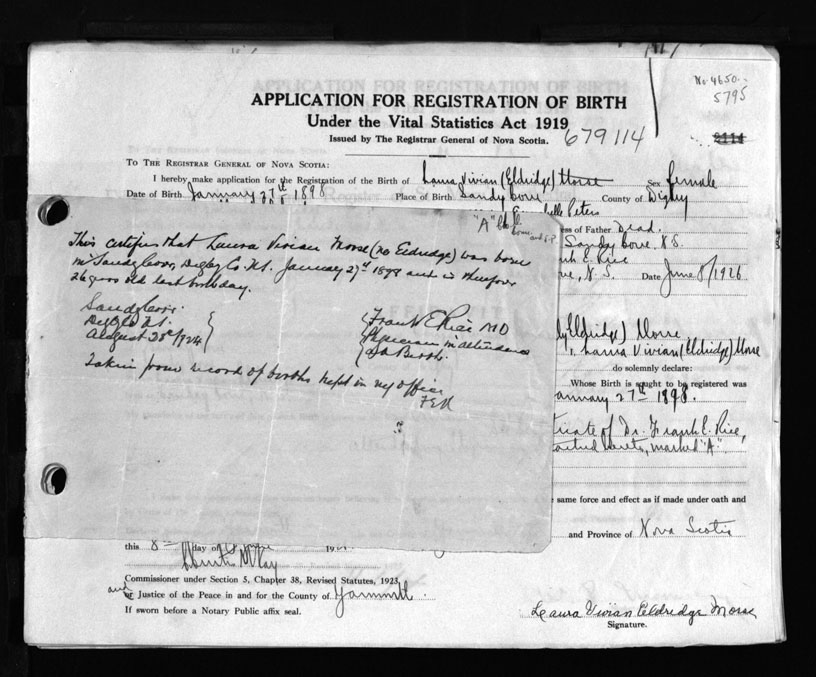 No. 4650
5795
APPLICATION FOR REGISTRATION OF BIRTH
Under the Vital Statistics Act 1919
Issued by The Registrar General of Nova Scotia.
679114
2114
To The Registrar General of Nova Scotia:
I hereby make application for the Registration of the Birth of Laura Vivian (Eldridge) Morse Sex female
Date of Birth January 27th 1898 Place of Birth Sandy Cove County of Digby
Peters
ss of Father Dead.
Sandy Cove N.S.
k E. Rice
ve, N.S. Date June 8/1926
"A"
This certifies that Laura Vivian Morse (no Eldredge) was born
in Sandy Cove, Digby Co. N.S. January 27th 1898 and is therefore
26 years old last birthday.
Sandy Cove
Digby N.S.
August 28th 1924
Frank E Rice MD
Physician in attendance
at Birth.
Taken from record of births kept in my office
FER
y Eldridge) Morse
, Laura Vivian (Eldridge) Morse
do solemnly declare:
Whose Birth is sought to be registered was
anuary 27th 1898.
icate of Dr. Frank E. Rice,
hereto, marked "A".
same force and effect as if made under oath and
and Province of Nova Scotia
this 8th day of
Commissioner under Section 5, Chapter 38, Revised Statutes, 1923,
and or Justice of the Peace in and for the County of Yarmouth
If sworn before a Notary Public affix seal.
Laura Vivian Eldredge Morse
Signature.